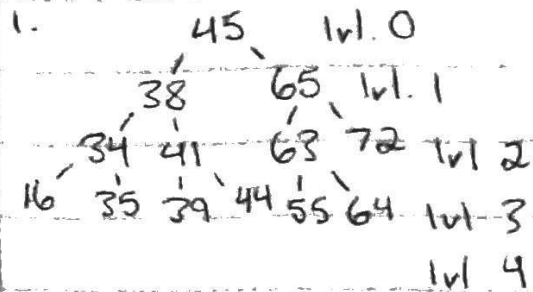 1. 45 lvl. 0
38 65 lvl. 1
34 41 63 72 lvl 2
16 35 39 44 55 64 lvl 3
lvl 4